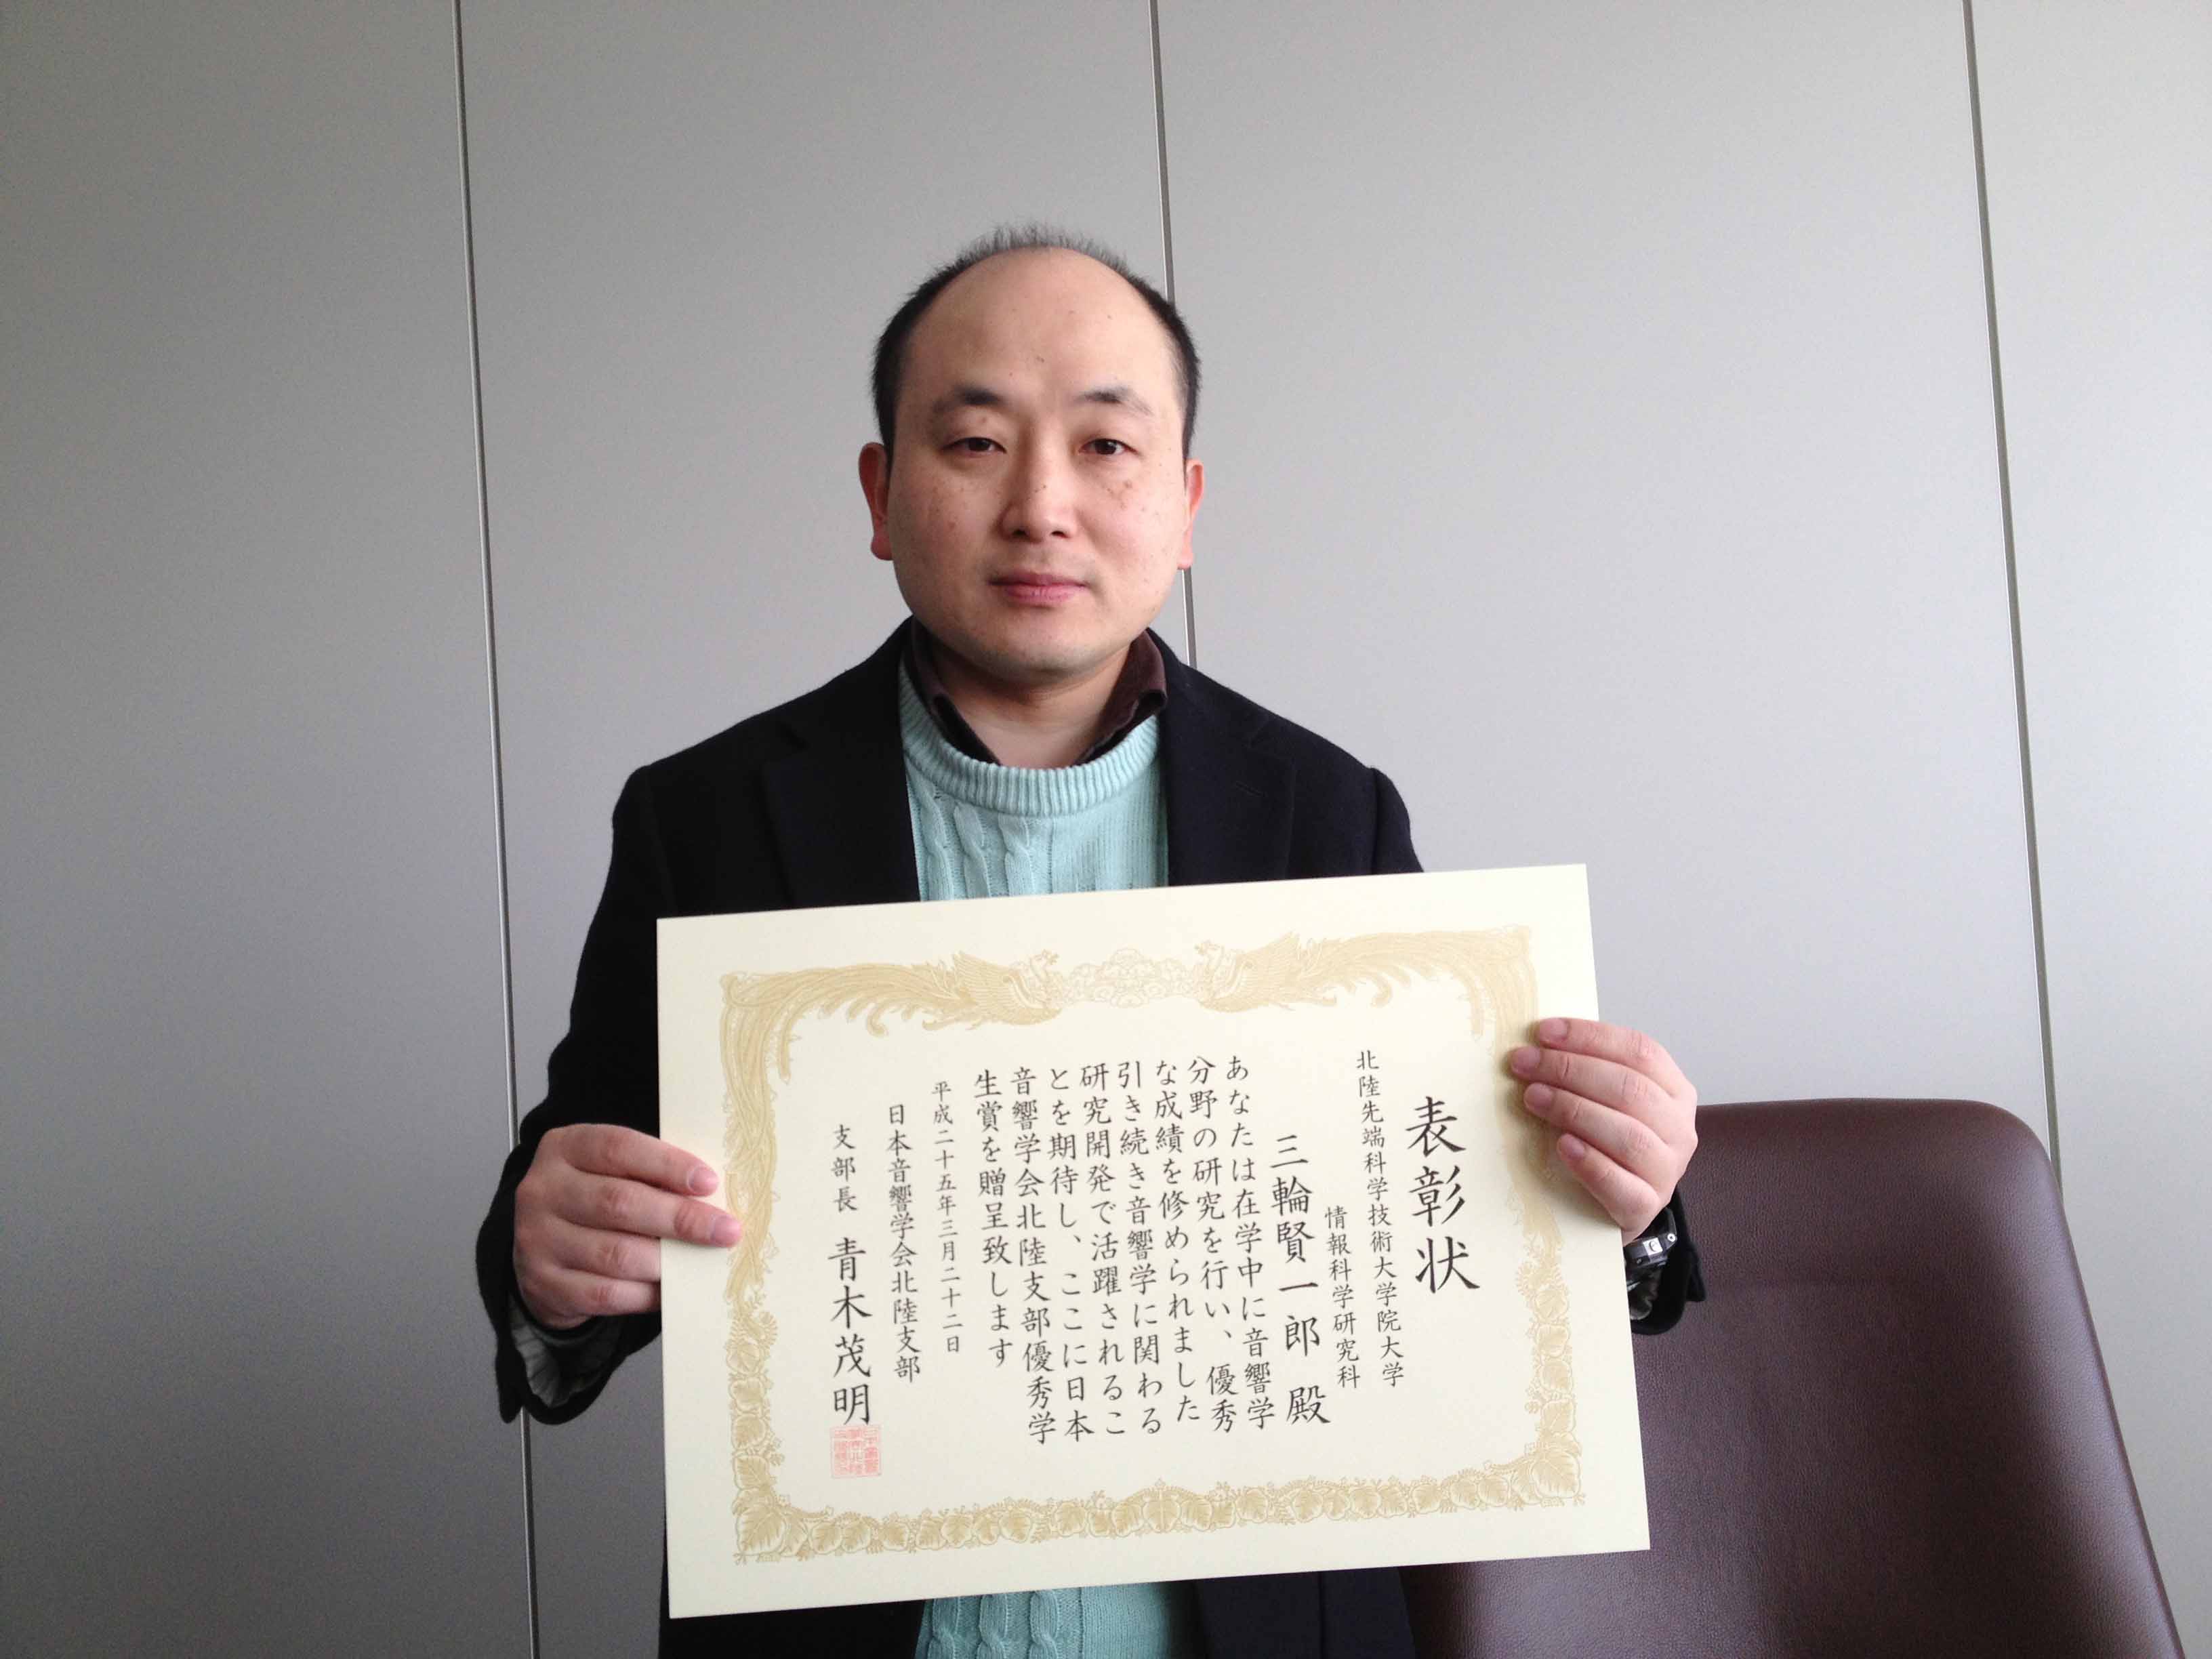 表彰状
北陸先端科学技術大学院大学
情報科学研究科
三輪賢一郎 殿
あなたは在学中に音響学
分野の研究を行い、優秀
な成績を修められました
引き続き音響学に関わる
研究開発で活躍されるこ
とを期待し、ここに日本
音響学会北陸支部優秀学
生賞を贈呈致します
平成二十五年三月二十二日
日本音響学会北陸支部
支部長 青木茂明